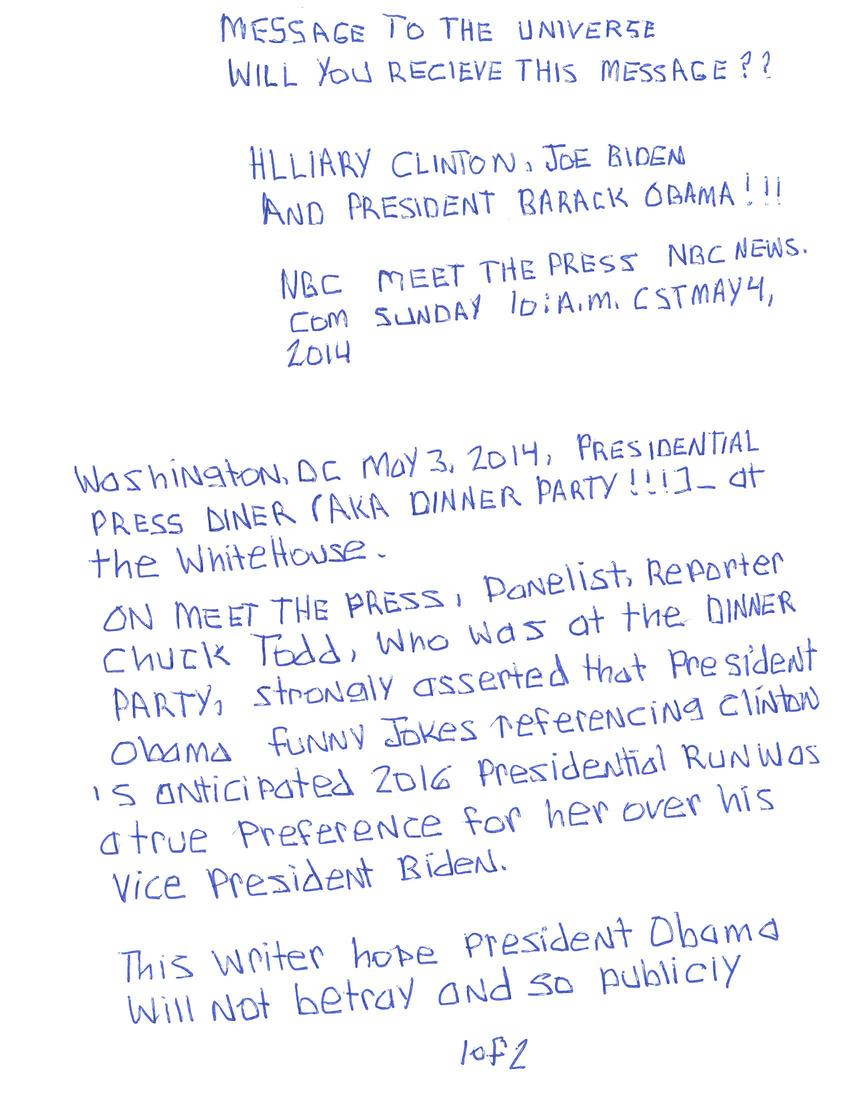 MESSAGE TO THE UNIVERSE
WILL YOU RECIEVE THIS MESSAGE??
HLLIARY CLINTON, JOE BIDEN
AND PRESIDENT BARACK OBAMA!!!
NBC MEET THE PRESS NBC NEWS.
COM SUNDAY 10:A.M. CST MAY 4,
2014
Washington, DC May 3, 2014, PRESIDENTIAL
PRESS DINER (AKA DINNER PARTY!!!]_ at
the White House.
ON MEET THE PRESS, Panelist, Reporter
Chuck Todd, who was at the DINNER
PARTY, strongly asserted that President
Obama funny Jokes referencing Clinton
's anticipated 2016 Presidential RUN Was
a true Preference for her over his
Vice President Biden.
This Writer hope President Obama
Will Not betray and so publicly
1 of 2